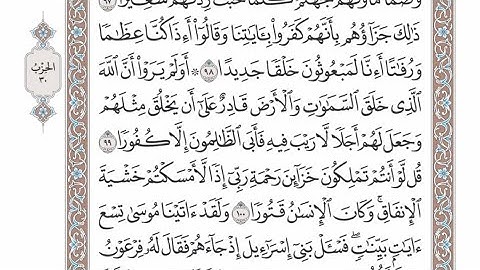 وَصُمًّا مَّأْوَىٰهُمْ جَهَنَّمُ كُلَّمَا خَبَتْ زِدْنَٰهُمْ سَعِيرًا ٩٧
ذَٰلِكَ جَزَآؤُهُم بِأَنَّهُمْ كَفَرُوا۟ بِـَٔايَٰتِنَا وَقَالُوٓا۟ أَءِذَا كُنَّا عِظَٰمًا
وَرُفَٰتًا أَءِنَّا لَمَبْعُوثُونَ خَلْقًا جَدِيدًا ٩٨ ۞ أَوَلَمْ يَرَوْا۟ أَنَّ ٱللَّهَ
ٱلَّذِى خَلَقَ ٱلسَّمَٰوَٰتِ وَٱلْأَرْضَ قَادِرٌ عَلَىٰٓ أَن يَخْلُقَ مِثْلَهُمْ
وَجَعَلَ لَهُمْ أَجَلًا لَّا رَيْبَ فِيهِ فَأَبَى ٱلظَّٰلِمُونَ إِلَّا كُفُورًا ٩٩
قُل لَّوْ أَنتُمْ تَمْلِكُونَ خَزَآئِنَ رَحْمَةِ رَبِّىٓ إِذًا لَّأَمْسَكْتُمْ خَشْيَةَ
ٱلْإِنفَاقِ ۚ وَكَانَ ٱلْإِنسَٰنُ قَتُورًا ١٠٠ وَلَقَدْ ءَاتَيْنَا مُوسَىٰ تِسْعَ
ءَايَٰتٍۭ بَيِّنَٰتٍ ۖ فَسْـَٔلْ بَنِىٓ إِسْرَٰٓءِيلَ إِذْ جَآءَهُمْ فَقَالَ لَهُۥ فِرْعَوْنُ
الحِزْب
٣٠